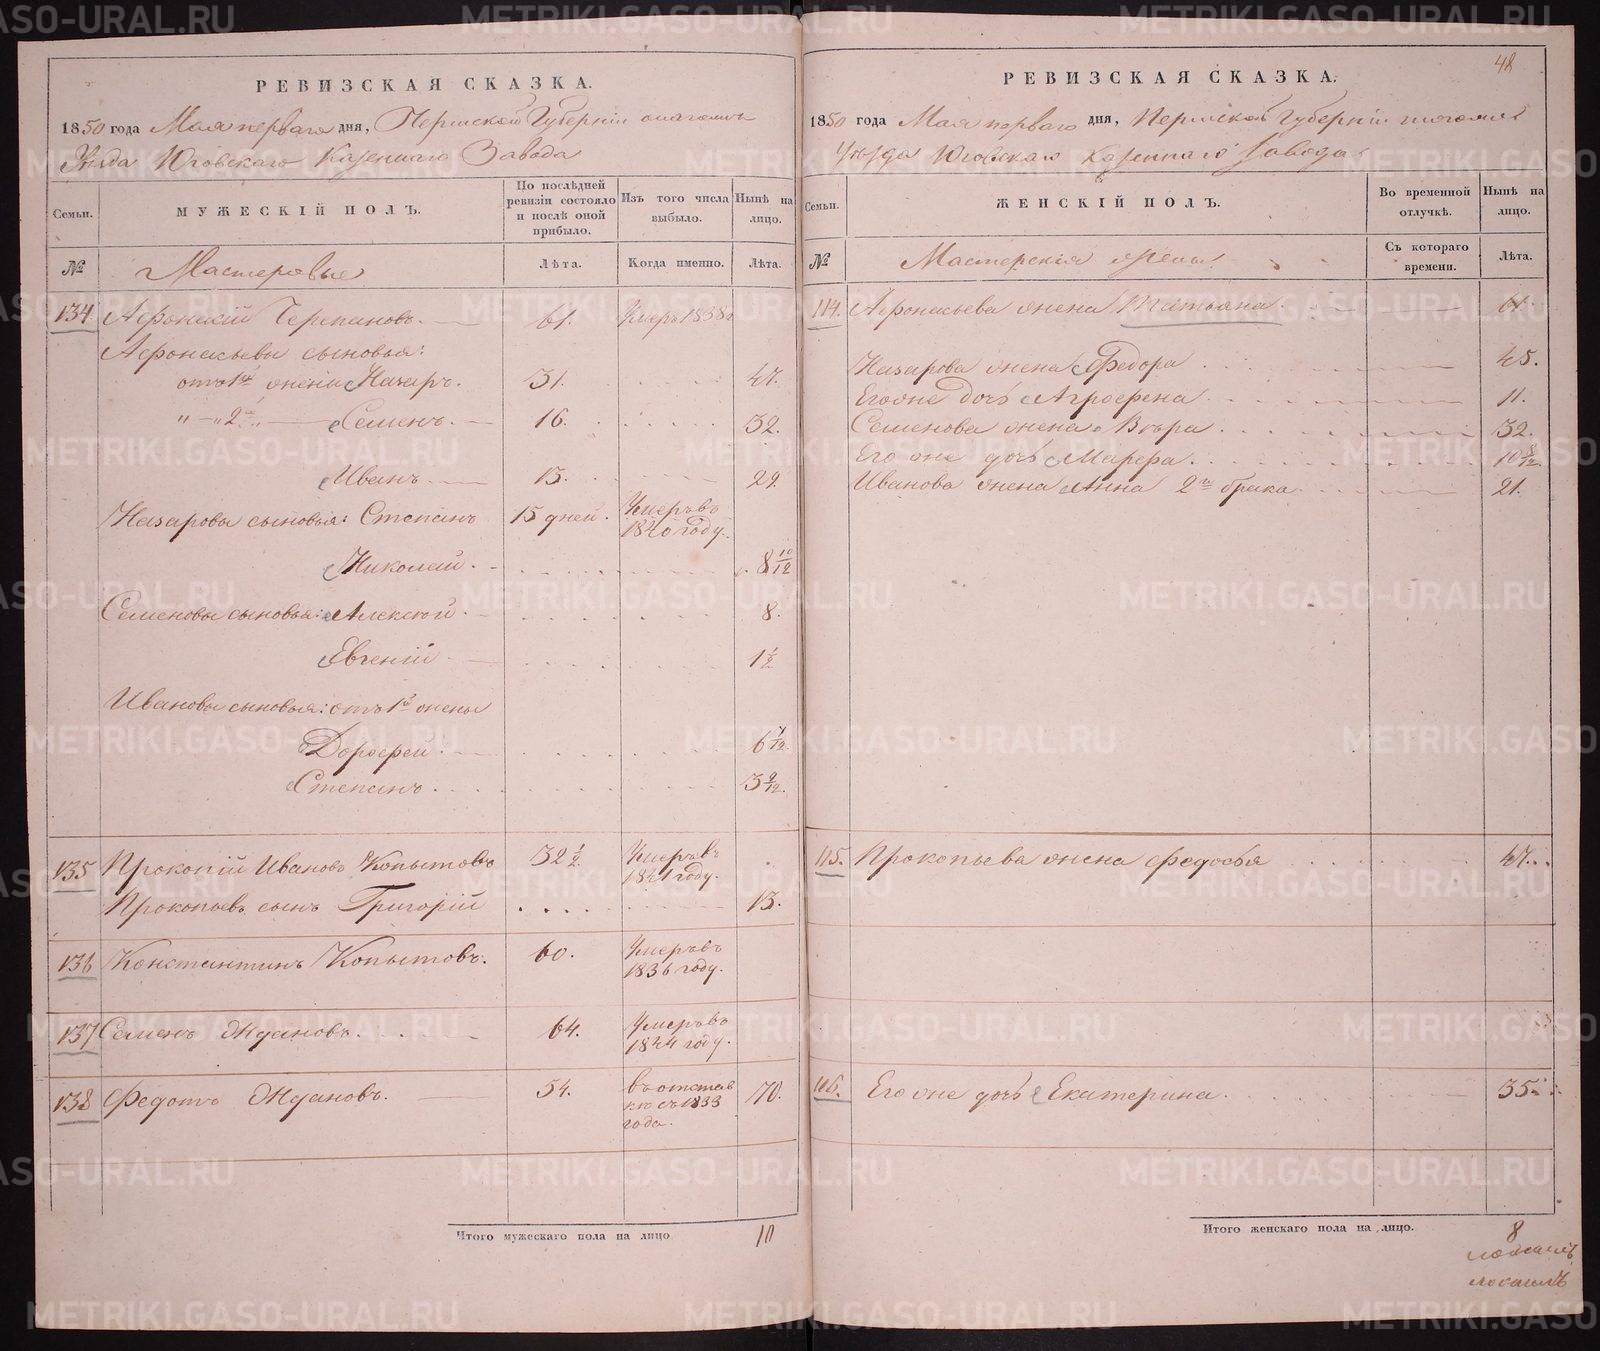 РЕВИЗСКАЯ СКАЗКА.
1850 года Мая перваго дня, Пермской Губерніи
Уѣзда Юговскаго Казеннаго Завода
Семьи.
МУЖЕСКІЙ ПОЛЪ.
По послѣдней ревизіи состояло и послѣ оной прибыло.
Изъ того числа выбыло.
Нынѣ на лицо.
№ Мастеровые Лѣта. Когда именно. Лѣта.
134 Афонасій Черепановъ. 61. Умеръ 1838
Афонасьевы сыновья:
отъ 1й жены Назаръ. 31. 47.
" — " 2й " — Семенъ. 16. 32.
Иванъ 13. 29.
Назаровы сыновья: Степанъ 15 дней. Умеръ въ 1840 году.
Николай. 8 10/12
Семеновы сыновья: Алексѣй 8.
Евгеній 1 1/2
Ивановы сыновья: отъ 1й жены
Дорофей. 6 4/12.
Степанъ. 3 9/12.
135 Прокопій Ивановъ Копытовъ 32 1/2. Умеръ въ 1841 году.
Прокопьевъ сынъ Григорій 13.
136 Константинъ Копытовъ. 60. Умеръ въ 1836 году.
137 Семенъ Ждановъ. 64. Умеръ въ 1844 году.
138 Федотъ Ждановъ. 54. въ отставкѣ съ 1833 года. 70.
Итого мужескаго пола на лицо 10
48
РЕВИЗСКАЯ СКАЗКА.
1850 года Мая перваго дня, Пермской Губерніи
Уѣзда Юговскаго Казеннаго Завода
Семьи.
ЖЕНСКІЙ ПОЛЪ.
Во временной отлучкѣ.
Нынѣ на лицо.
№ Мастерскія жены Съ котораго времени. Лѣта.
114. Афонасьева жена Татьяна 61.
Назарова жена Федора 45.
Его же дочь Агрофена 11.
Семенова жена Вѣра 32.
Его же дочь Марфа. 10 8/12
Иванова жена Анна 2го брака 21.
115. Прокопьева жена Федосья 47.
116. Его же дочь Екатерина. 35.
Итого женскаго пола на лицо. 8
METRIKI.GASO-URAL.RU